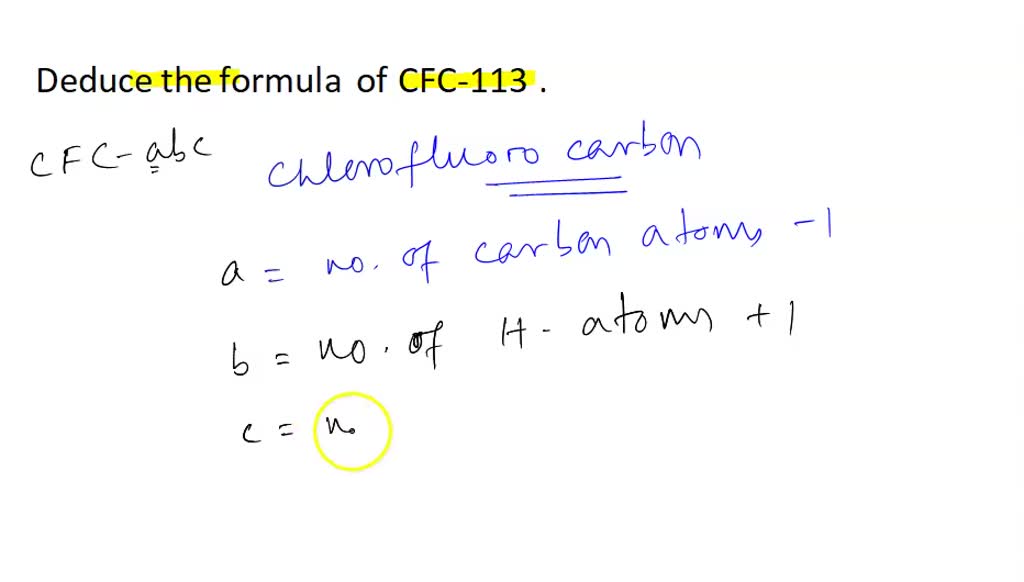 Deduce the formula of CFC-113 .
CFC-abc
chlorofluoro carbon
a = no. of carbon atoms -1
b = no. of H- atoms +1
c = no